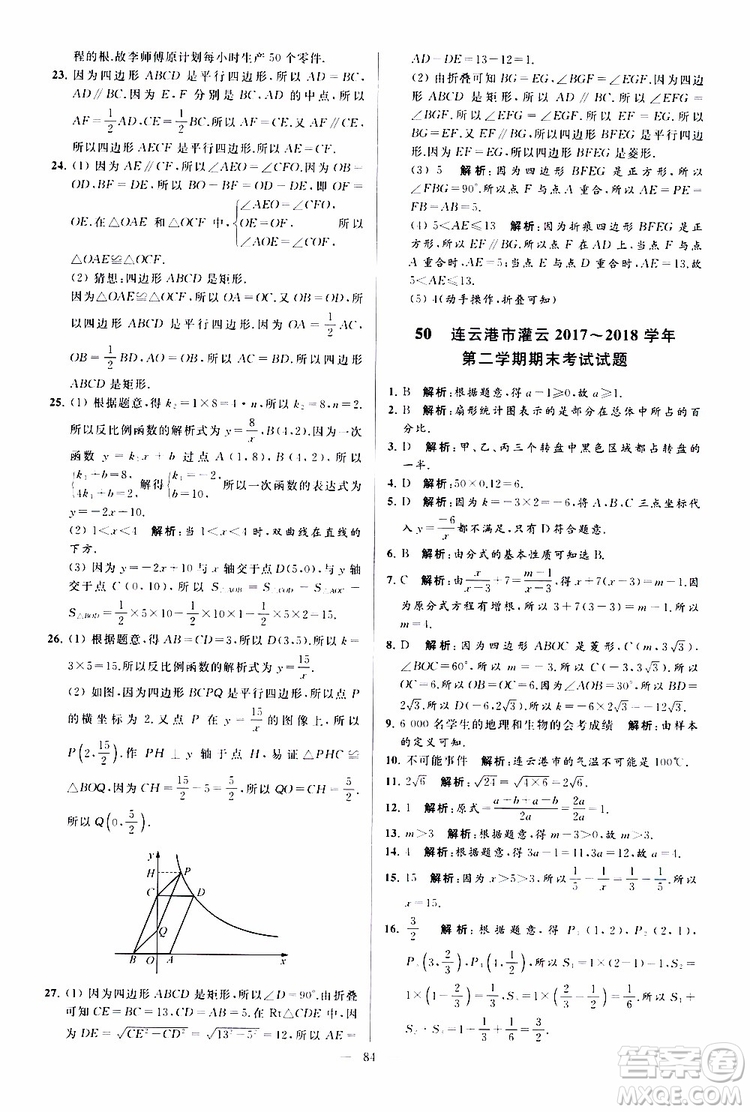 程的根.故李师傅原计划每小时生产 50 个零件.
23. 因为四边形 ABCD 是平行四边形,所以 AD=BC,
AD∥BC. 因为 E、F 分别是 BC、AD 的中点,所以
AF=1/2AD,CE=1/2BC. 所以 AF=CE. 又 AF∥CE,
所以四边形 AECF 是平行四边形.
24. (1) 因为 AE∥CF,所以∠AEO=∠CFO. 因为 OB=
OD,BF=DE,所以 OB-BF=OD-DE,即 OF=
OE. 在△OAE 和△OCF 中,{∠AEO=∠CFO, OE=OF, ∠AOE=∠COF, 所以
△OAE≌△OCF.
(2) 猜想:四边形 ABCD 是矩形.
因为△OAE≌△OCF,所以 OA=OC. 又 OB=OD,
所以四边形 ABCD 是平行四边形. 因为 OA=1/2
AC,OB=1/2BD,且 OA=OB,所以 AC=BD. 所以四
边形 ABCD 是矩形.
25. (1) 根据题意,得 k₂=1×8=4×2,所以 k₂=8.
所以反比例函数的解析式为 y=8/x,B(4,2). 因为一次
函数 y=k₁x+b 过点 A(1,8),B(4,2),所以
{k₁+b=8, 4k₁+b=2, 解得{k₁=-2, b=10. 所以一次函数的表达式为
y=-2x+10.
(2) 1<x<4 解析:当 1<x<4 时,双曲线在直线的
下方.
(3) 因为直线 y=-2x+10 与 x 轴交于点 D(5,0),与 y 轴
交于点 C(0,10),所以 S△AOB=S△COD-S△AOC-
S△BOD=1/2×5×10-1/2×10×1-1/2×5×2=15.
26. (1) 根据题意,得 AB=CD=3,所以 D(3,5),所以 k=
3×5=15. 所以反比例函数的解析式为 y=15/x.
(2) 如图,因为四边形 BCPQ 是平行四边形,所以点 P
的横坐标为 2. 又点 P 在 y=15/x 的图像上,所以
P(2,15/2). 作 PH⊥y 轴于点 H,易证△PHC≌
△BOQ. 因为 CH=15/2-5=5/2,所以 QO=CH=5/2.
所以 Q(0,5/2).
y
H P
C D
Q
B O A x
27. (1) 因为四边形 ABCD 是矩形,所以∠D=90°. 由折叠
可知 CE=BC=AD=13,CD=AB=5. 在 Rt△CDE 中,因
为 DE=√(CE²-CD²)=√(13²-5²)=12,所以 AE=
AD-DE=13-12=1.
(2) 由折叠可知 BG=EG,∠BFG=∠EFG. 因为四边
形 ABCD 是矩形,所以 BC∥AD. 所以∠BFG=
∠EGF. 所以∠EFG=∠EGF. 所以 EF=EG. 所以
BG=EG=EF=BF. 所以四边形 BFEG 是菱形.
(3) 5 解析:根据题意,可知四边形 BFEG 是正方
形,所以点 F 与点 A 重合,所以 AE=PE=
FB=AB=5.
(4) 5<AE≤13 解析:因为折痕四边形 BFEG 是正
方形时,AE=5;当点 E、D 重合时,AE=13.故
5<AE≤13.
(5) 4(动手操作,折叠可知)
50 连云港市灌云 2017～2018 学年
第二学期期末考试试题
1. B 解析:根据题意,得 a-1≥0,所以 a≥1.
2. B 解析:扇形统计图表示的是部分在总体中所占的百
分比.
3. D 解析:甲、乙、丙三个转盘中黑色区域都占转盘的
一半.
4. D 解析:50×0.12=6.
5. D 解析:因为 xy=-6,所以将 A、B、C 三点坐标代
入 y=-6/x 都不满足,只有 D 符合题意.
6. B 解析:由分式的基本性质可选 B.
7. C
为原分式方程有增根,所以 3+7(3-3)=m. 所以
m=3.
8. D 解析:因为四边形 ABOC 是菱形,C(3,3√3),
∠BOC=60°,所以∠BOD=30°. 因为 C(3,3√3),所以
OC=6. 所以 OB=6,所以 D(-6,2√3). 所以 OD=
2√3.
9. 6 000 名学生的地理和生物的会考成绩 解析:由样本
的定义可知.
10. 不可能事件 解析:连云港市的气温不可能 100℃.
11. 2√6 解析:√24=√(4×6)=2√6.
12. 1 解析:原式=(a-b+a+b)/2a=2a/2a=1.
13. m>3 解析:根据题意,得 m-3>0,所以 m>3.
14. 4
15. 15 解析:因为 x>5>3,所以 1/5-1/x=1/3-1/5,所以
x=15.
16. 3/2 解析:根据题意,得 P₁(1,2),P₂(2,1),
84
答案圈
MXQE.COM